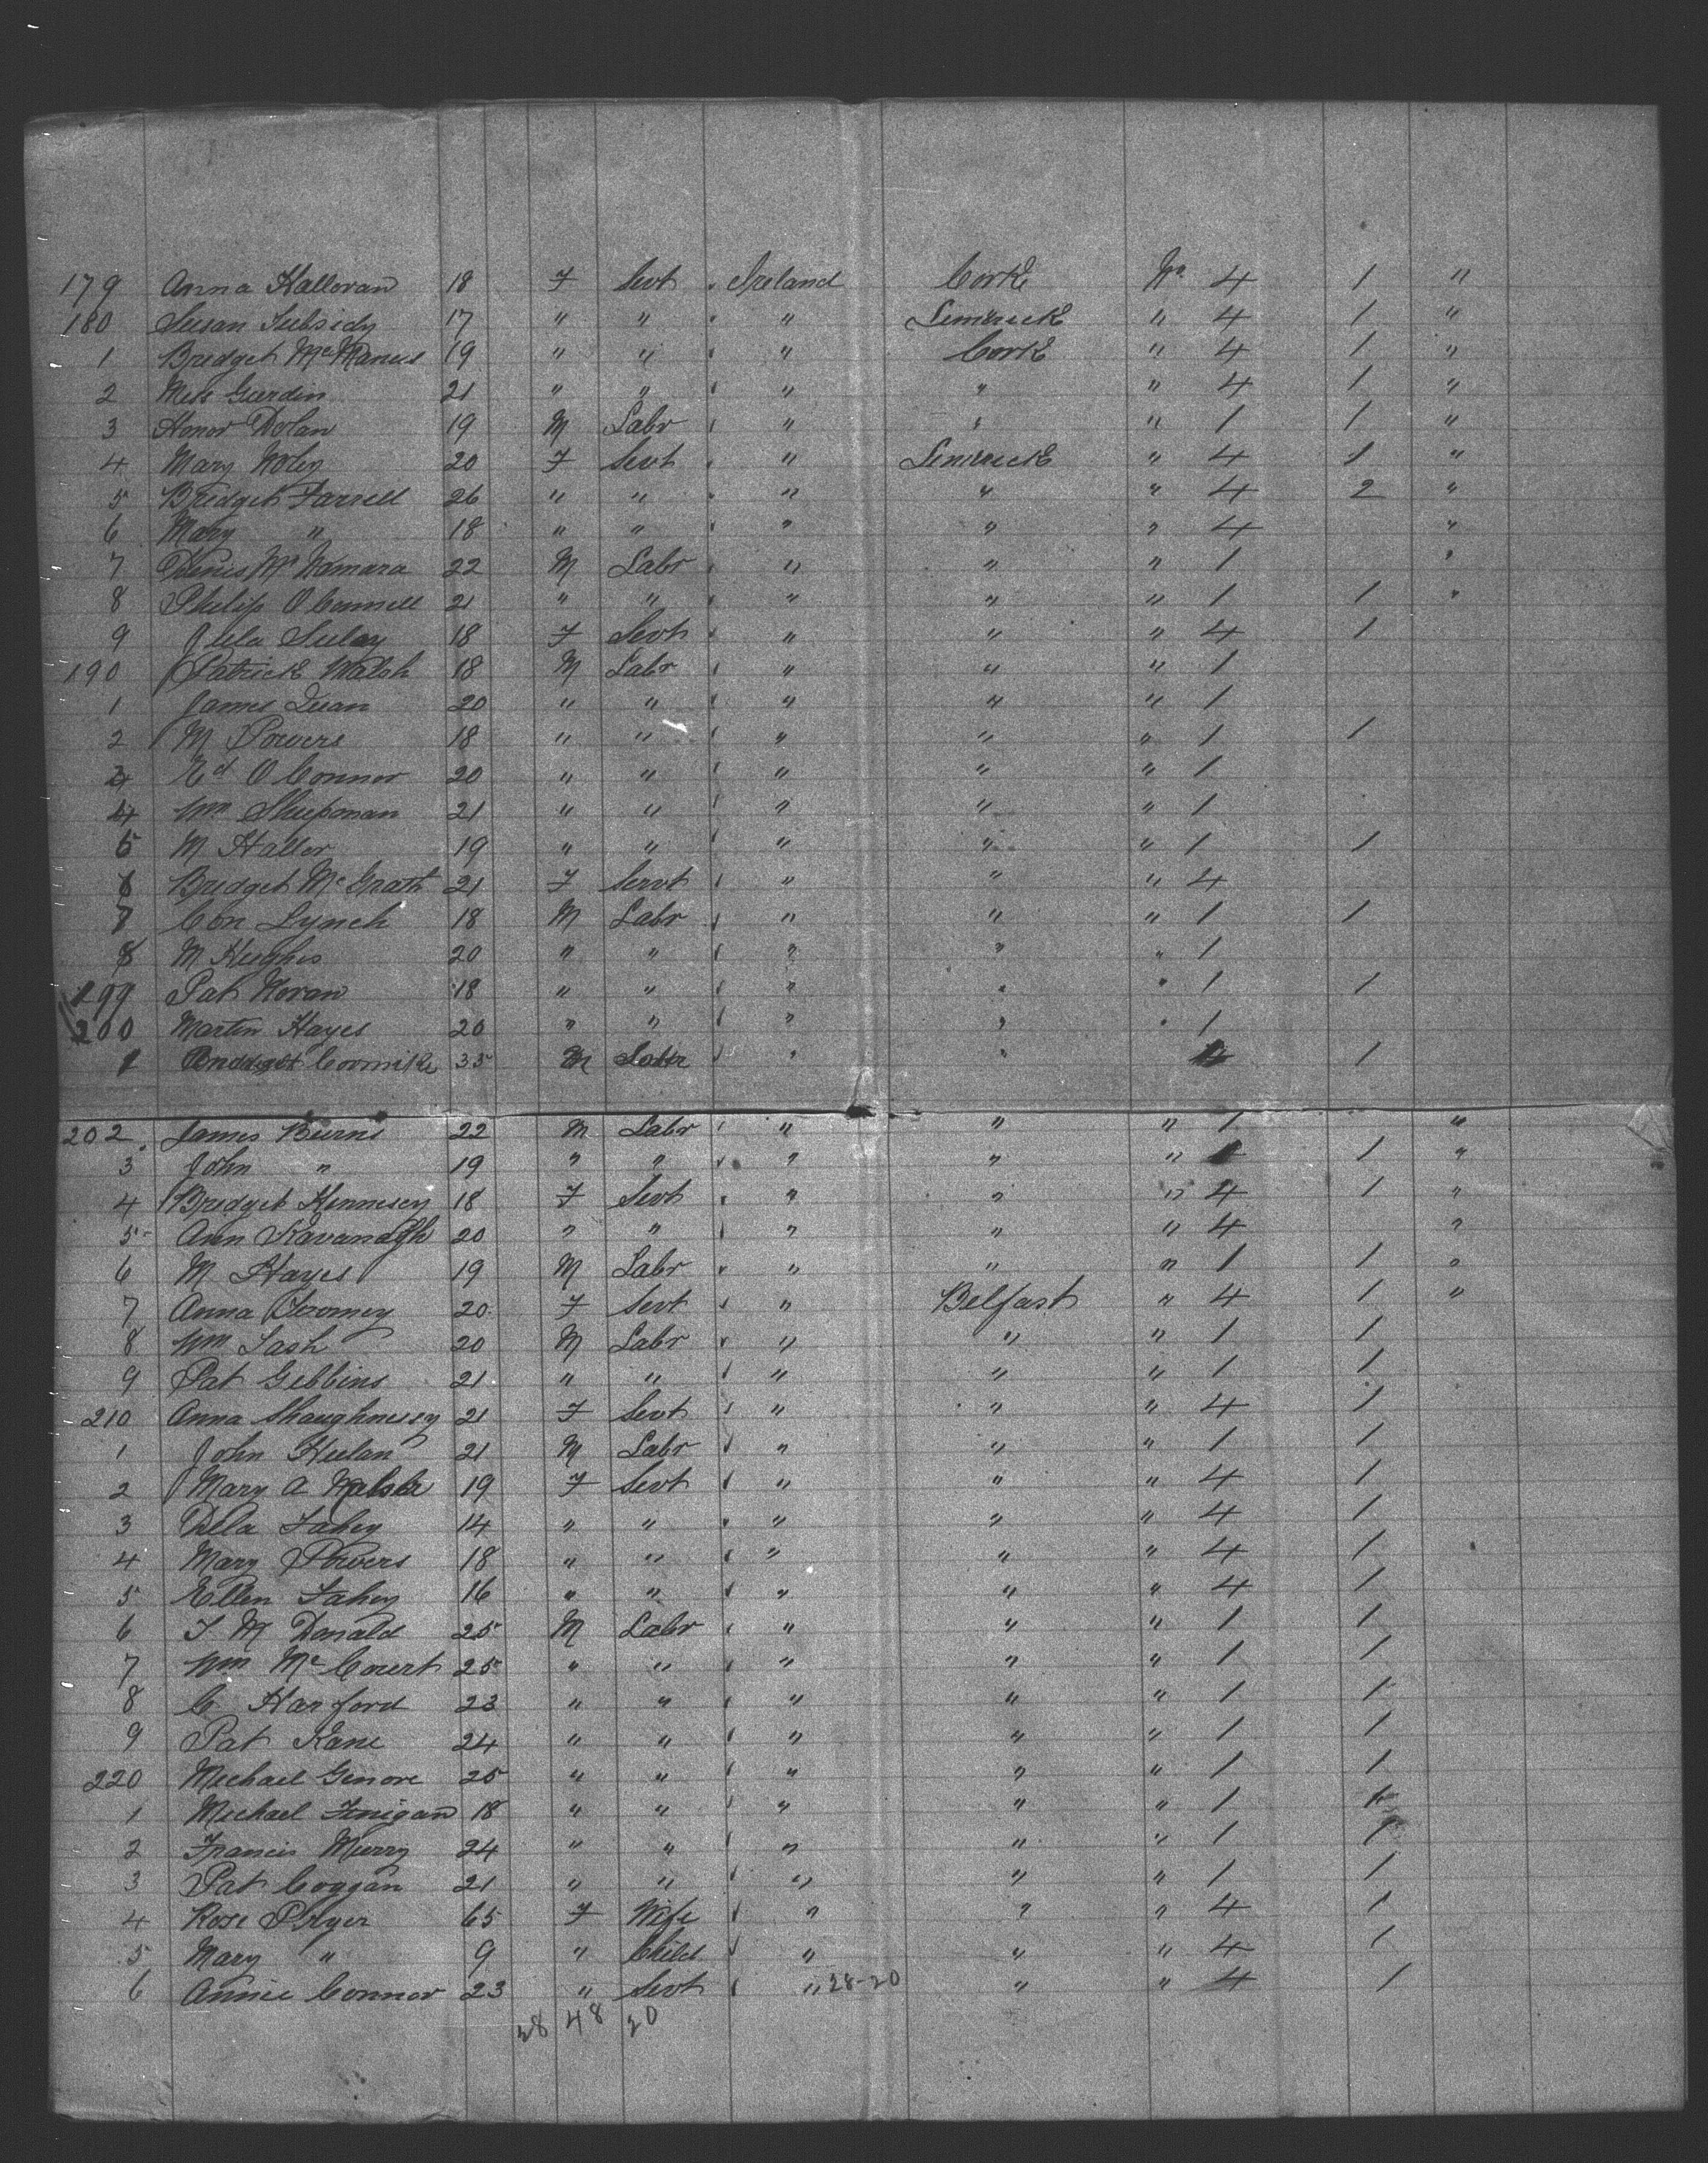 179 Anna Halloran 18 F Servt Ireland Cork No. 4 1 "
180 Susan Subsidy 17 " " " Limerick " 4 1 "
1 Bridget McManus 19 " " " Cork " 4 1 "
2 Giardin 21 " " " " " 4 1 "
3 Honor Dolan 19 M Labr " " " 1 1 "
4 Mary Foley 20 F Servt " Limerick " 4 1 "
5 Bridget Farrell 26 " " " " " 4 2 "
6 Mary " 18 " " " " " 4 "
7 Denis McNamara 22 M Labr " " " 1 "
8 Philip O'Connell 21 " " " " " 1 1 "
9 18 F Servt " " " 4 1
190 Patrick Walsh 18 M Labr " " " 1
1 James 20 " " " " " 1
2 M Powers 18 " " " " " 1 1
3 Ed O Connor 20 " " " " " 1
4 Wm 21 " " " " " 1
5 M Haller 19 " " " " " 1 1
6 Bridget McGrath 21 F Servt " " " 4
7 Con Lynch 18 M Labr " " " 1 1
8 M Hughes 20 " " " " " 1
199 Pat Horan 18 " " " " " 1 1
200 Martin Hayes 20 " " " " " 1
1 33 M Labr " " 1
202 James Burns 22 M Labr " " " 1 "
3 John " 19 " " " " " 1 1 "
4 Bridget Hennesey 18 F Servt " " " 4 1 "
5 Ann Kavanagh 20 " " " " " 4 "
6 M Hayes 19 M Labr " " " 1 1 "
7 Anna Toomey 20 F Servt " Belfast " 4 1 "
8 Wm Lash 20 M Labr " " " 1 1
9 Pat Gibbins 21 " " " " " 1 1
210 Anna Shaughnessy 21 F Servt " " " 4 1
1 John Heelan 21 M Labr " " " 1 1
2 Mary A Walsh 19 F Servt " " " 4 1
3 Dela Fahey 14 " " " " " 4 1
4 Mary Powers 18 " " " " " 4 1
5 Ellen Fahey 16 " " " " " 4 1
6 M Donald 25 M Labr " " " 1 1
7 Wm McCourt 25 " " " " " 1 1
8 C Hanford 23 " " " " " 1 1
9 Pat Kane 24 " " " " " 1 1
220 Michael Genore 25 " " " " " 1 1
1 Michael Finigan 18 " " " " " 1 1
2 Francis Murry 24 " " " " " 1 1
3 Pat Coggan 21 " " " " " 1 1
4 Rose Pryer 65 F Wife " " " 4 1
5 Mary " 9 " Child " " " 4 1
6 Annie Connor 23 " Servt " 28-20 " " 4 1
28 48 20